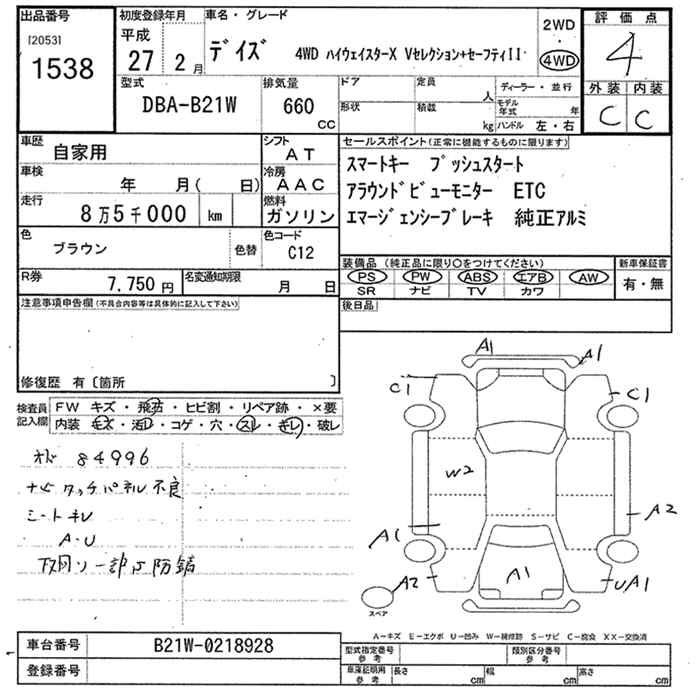 出品番号
[2053]
1538
初度登録年月
平成
27 2 月
車名・グレード
デイズ 4WD ハイウェイスターX Vセレクション+セーフティII
2WD
・
4WD
評価点
4
外装 内装
C C
型式
DBA-B21W
排気量
660
CC
ドア
形状
定員
人
積載
kg
ディーラー・並行
モデル
年式
年
ハンドル 左・右
車歴
自家用
シフト
AT
車検
年 月( 日)
冷房
AAC
走行
8万5千000 km
燃料
ガソリン
色
ブラウン
色替
色コード
C12
R券
7,750円
名変通知期限
月 日
セールスポイント(正常に機能するものに限ります)
スマートキー プッシュスタート
アラウンドビューモニター ETC
エマージェンシーブレーキ 純正アルミ
装備品(純正品に限り○をつけてください)
PS PW ABS エアB AW
SR ナビ TV カワ
新車保証書
有・無
後日品
注意事項申告欄(不具合内容等は具体的に記入して下さい)
修復歴 有〔箇所 〕
検査員
記入欄
FW キズ・飛石・ヒビ割・リペア跡・×要
内装 キズ・汚レ・コゲ・穴・スレ・キレ・破レ
オド 84996
ナビタッチパネル不良
シートキレ
A・U
下回り一部サ防錆
A1
A1
C1
C1
W2
A2
A1
A2
A1
UA1
スペア
A-キズ E-エクボ U-凹み W-補修跡 S-サビ C-腐食 XX-交換済
車台番号
B21W-0218928
登録番号
型式指定番号
参考
類別区分番号
参考
車庫証明用
参考
長さ cm
幅 cm
高さ cm